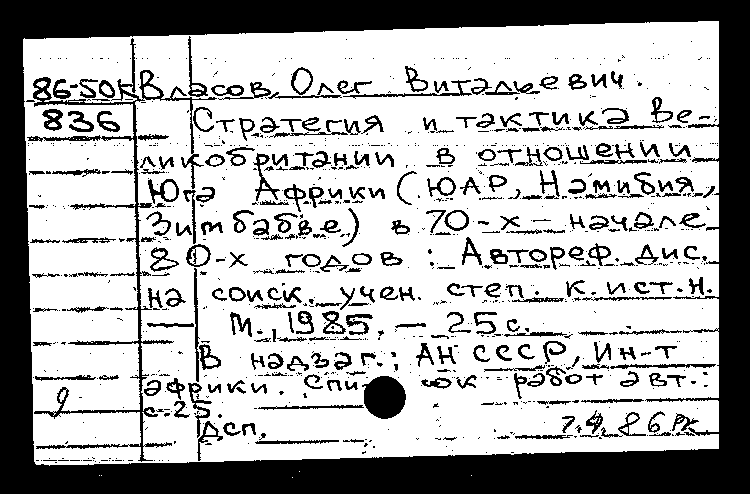 86-50к Власов, Олег Витальевич.
836 Стратегия и тактика Ве-
ликобритании в отношении
Юга Африки (ЮАР, Намибия,
Зимбабве) в 70-х – начале
80-х годов : Автореф. дис.
на соиск. учен. степ. к.ист.н.
— М., 1985. — 25 с.
В надзаг.: АН СССР, Ин-т
африки. Список работ авт.:
с. 25.
9
ДСП.
7.4.86 РК.